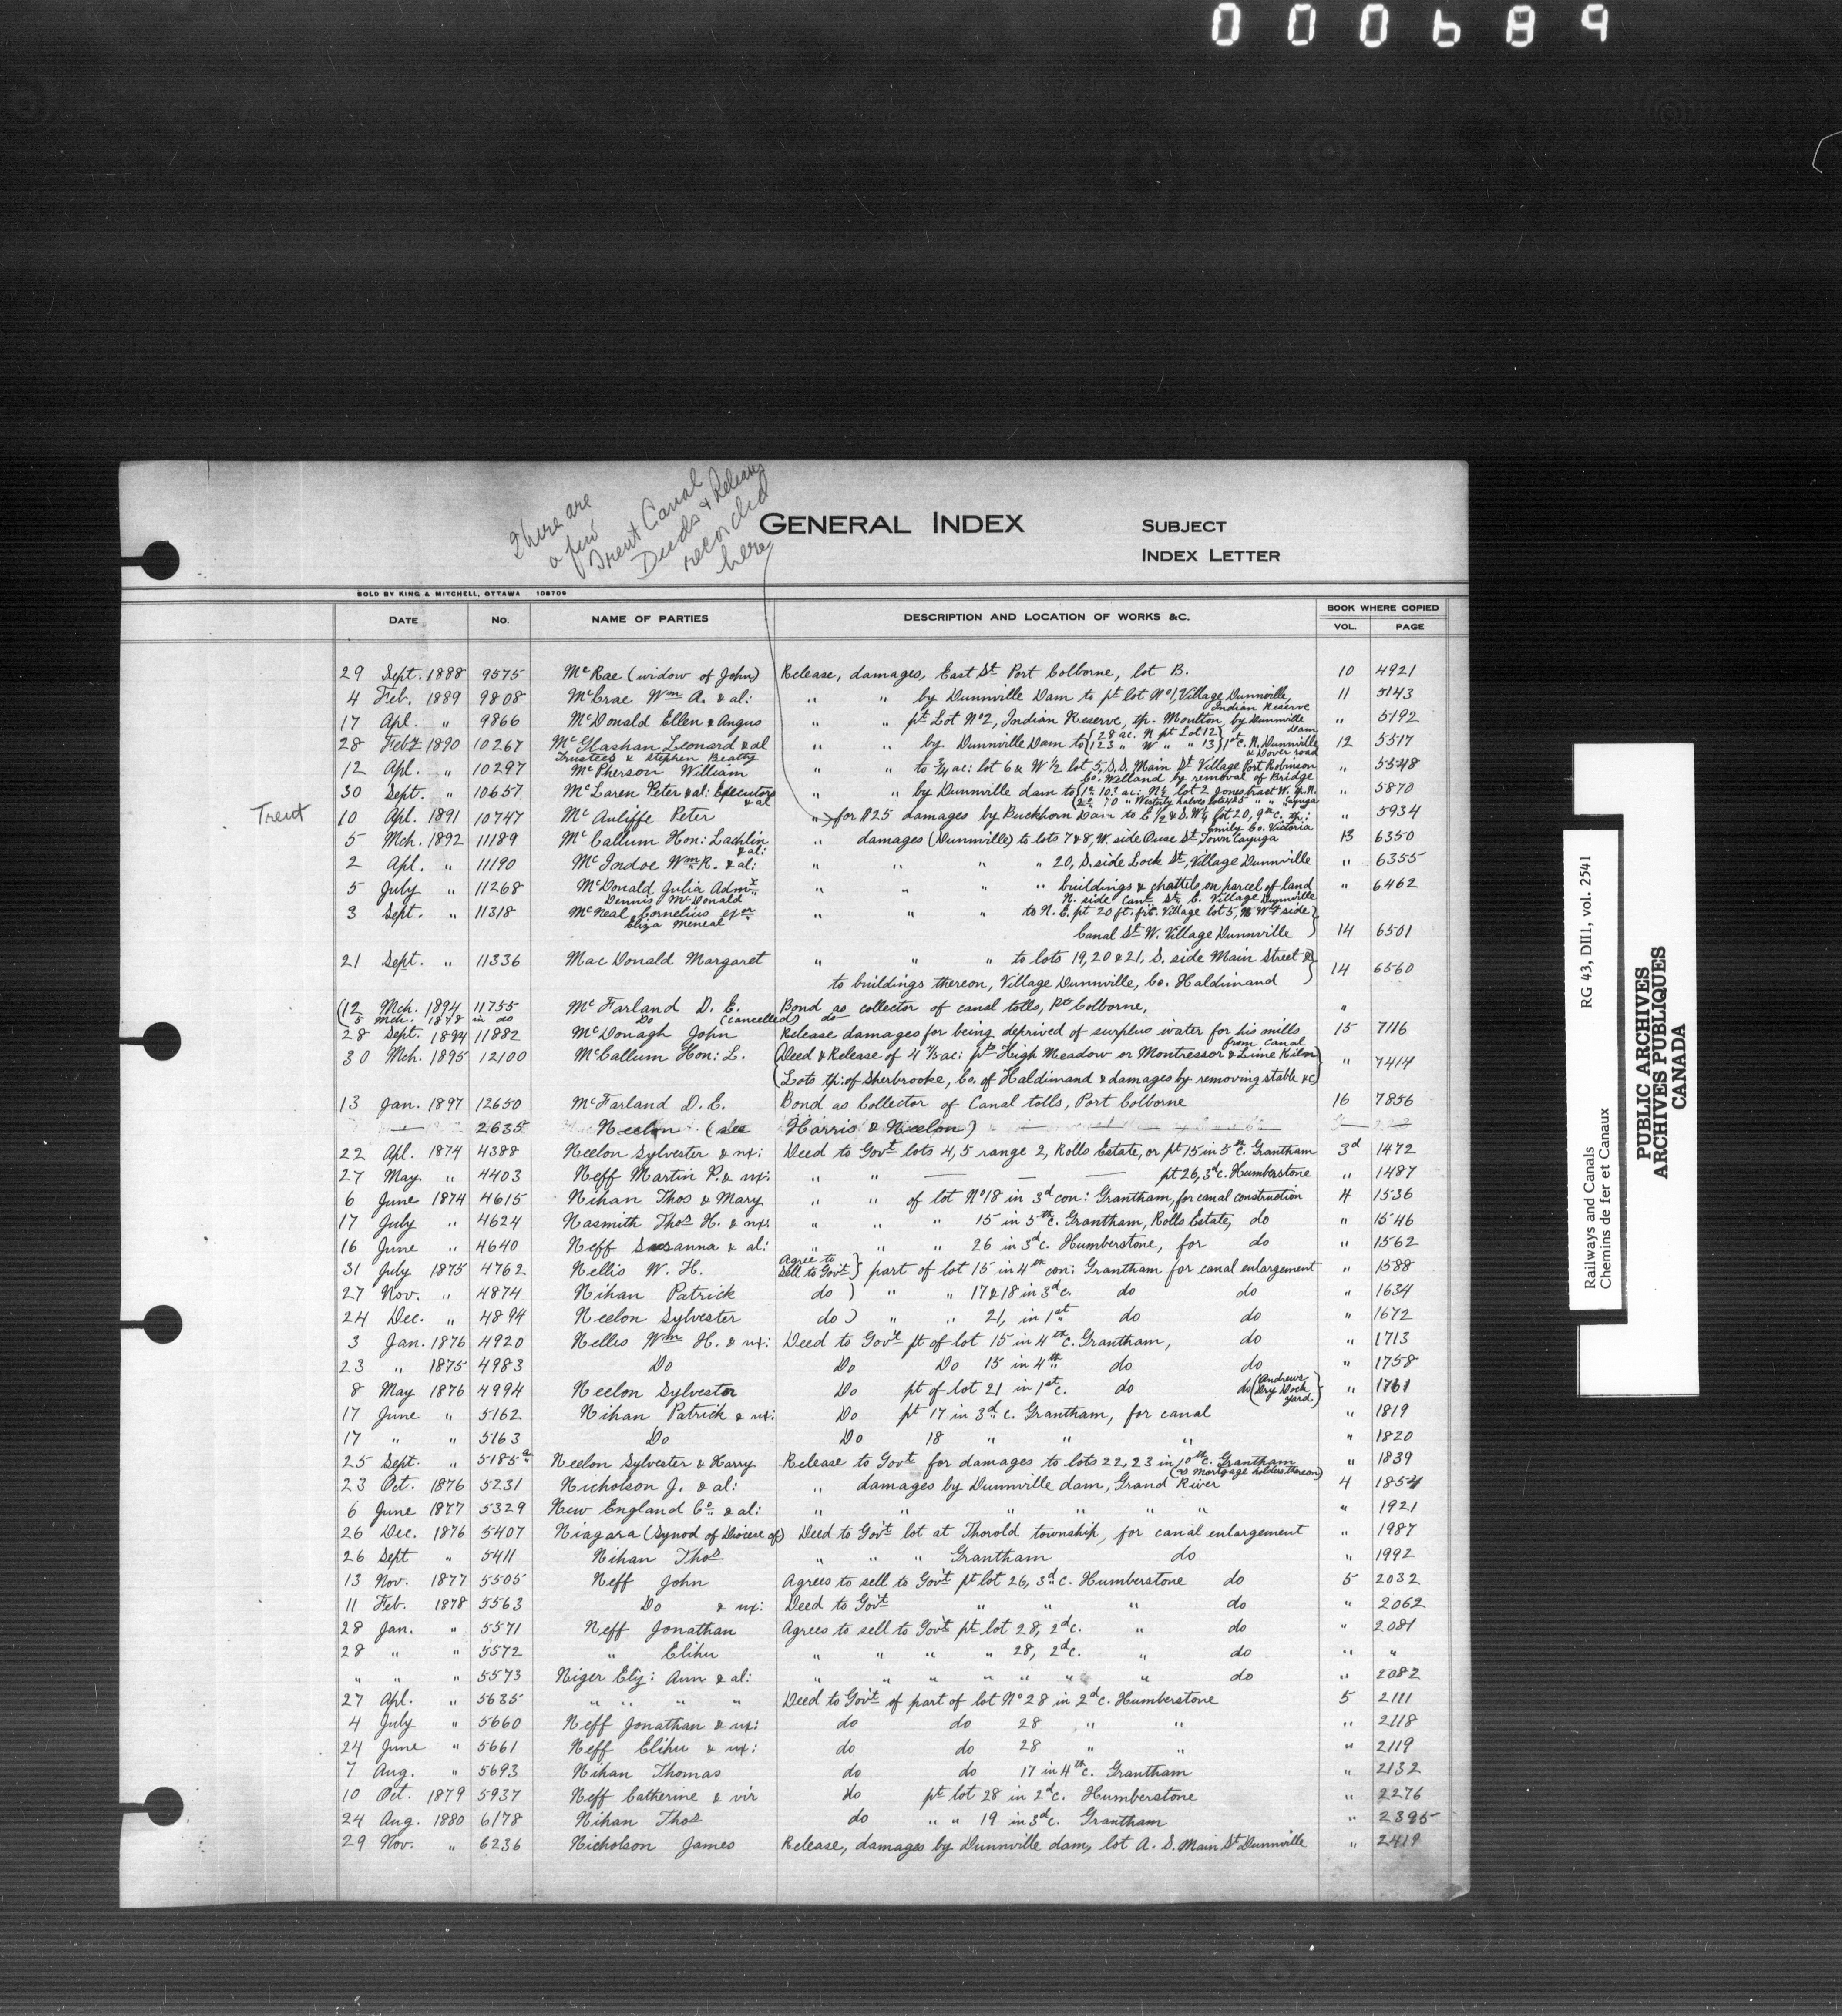 000689
There are
a few
Trent Canal
Deeds & Releases
recorded
here
GENERAL INDEX
SUBJECT
INDEX LETTER
SOLD BY KING & MITCHELL, OTTAWA 108709
DATE No. NAME OF PARTIES DESCRIPTION AND LOCATION OF WORKS &C. BOOK WHERE COPIED
VOL. PAGE
29 Sept. 1888 9575 McRae (widow of John) Release, damages, East St Port Colborne, lot B. 10 4921
4 Feb. 1889 9808 McCrae Wm A. & al: " " by Dunnville Dam to pt lot No 1, Village Dunnville, Indian Reserve 11 5143
17 Apl. " 9866 McDonald Ellen & Angus " " pt Lot No 2, Indian Reserve, tp. Moulton, by Dunnville Dam " 5192
28 Feby 1890 10267 McGlashan Leonard & al Trustees & Stephen Beatty " " by Dunnville Dam to { 28 ac. N pt Lot 12 } { 123 " W " " 13 } 1st C. N. Dunnville & Dover road 12 5517
12 Apl. " 10297 McPherson William " " to 3/4 ac: lot 6 & W 1/2 lot 5, S.S. Main St Village Port Robinson Co. Welland by removal of Bridge " 5548
30 Sept. " 10657 McLaren Peter & al: Executors & al " " by Dunnville dam to lot 2 Jones tract W. Cayuga " 5870
Trent 10 Apl. 1891 10747 McAuliffe Peter " for $25 damages by Buckhorn Dam to E 1/2 & S.W 1/4 lot 20, 9th c. tp: Emily Co. Victoria " 5934
5 Mch. 1892 11189 McCallum Hon: Lachlin & al: " damages (Dunnville) to lots 7 & 8, W. side Ouse St Town Cayuga 13 6350
2 Apl. " 11190 McIndoe Wm R. & al: " " " " 20, S. side Lock St, Village Dunnville " 6355
5 July " 11268 McDonald Julia Admx Dennis McDonald " " " " buildings & chattels on parcel of land N. side Canl St. E. Village Dunnville " 6462
3 Sept. " 11318 McNeal Cornelius exor Eliza Meneal " " " to N. E. pt 20 ft. frt. Village lot 5, N Wt side }
Canal St W. Village Dunnville } 14 6501
21 Sept. " 11336 MacDonald Margaret " " " to lots 19, 20 & 21, S. side Main Street & }
to buildings thereon, Village Dunnville, Co. Haldimand } 14 6560
(12 Mch. 1894 11755 McFarland D. E. Bond as collector of canal tolls, Pt Colborne, "
5 Mch. 1878 in do Do (cancelled) do
28 Sept. 1894 11882 McDonagh John Release damages for being deprived of surplus water for his mills from canal 15 7116
30 Mch. 1895 12100 McCallum Hon: L. (Deed & Release of 4 ac: pts High Meadow or Montressor & Lime Kiln } " 7414
(Lots tp: of Sherbrooke, Co. of Haldimand & damages by removing stable &c)
13 Jan. 1897 12650 McFarland D. E. Bond as Collector of Canal tolls, Port Colborne 16 7856
2635 Neelon (see Harris & Neelon)
22 Apl. 1874 4388 Neelon Sylvester & ux: Deed to Govt lots 4, 5 range 2, Rolls Estate, or pt 15 in 5th C. Grantham 3d 1472
27 May " 4403 Neff Martin P. & ux: " " — — — pt 26, 3d c. Humberstone " 1487
6 June 1874 4615 Nihan Thos & Mary " " of lot No 18 in 3d con: Grantham, for canal construction 4 1536
17 July " 4624 Nasmith Thos H. & ux: " " " 15 in 5th c. Grantham, Rolls Estate, do " 1546
16 June " 4640 Neff Susanna & al: " " " 26 in 3d c. Humberstone, for do " 1562
31 July 1875 4762 Nellis W. H. Agree to sell to Govt } part of lot 15 in 4th con: Grantham for canal enlargement " 1588
27 Nov. " 4874 Nihan Patrick do ) " " 17 & 18 in 3d c. do do " 1634
24 Dec. " 4894 Neelon Sylvester do ) " " 21, in 1st do do " 1672
3 Jan. 1876 4920 Nelles Wm H. & ux: Deed to Govt pt of lot 15 in 4th c. Grantham, do " 1713
23 " 1875 4983 Do Do Do 15 in 4th do do " 1758
8 May 1876 4994 Neelon Sylvester Do pt of lot 21 in 1st c. do do (Andrews Dry Dock yard) " 1761
17 June " 5162 Nihan Patrick & ux: Do pt 17 in 3d c. Grantham, for canal " 1819
17 " " 5163 Do Do 18 " " " " 1820
25 Sept. " 5185a Neelon Sylvester & Harry Release to Govt for damages to lots 22, 23 in 10th c. Grantham (as mortgage holders thereon) " 1839
23 Oct. 1876 5231 Nicholson J. & al: " damages by Dunnville dam, Grand River 4 1854
6 June 1877 5329 New England Co & al: " " " " " " " 1921
26 Dec. 1876 5407 Niagara (Synod of Diocese of) Deed to Govt lot at Thorold township, for canal enlargement " 1987
26 Sept " 5411 Nihan Thos " " " Grantham do " 1992
13 Nov. 1877 5505 Neff John Agrees to sell to Govt pt lot 26, 3d c. Humberstone do 5 2032
11 Feb. 1878 5563 Do & ux: Deed to Govt " " " do " 2062
28 Jan. " 5571 Neff Jonathan Agrees to sell to Govt pt lot 28, 2d c. " do " 2081
28 " " 5572 " Elihu " " " " 28, 2d c. " do " "
" " " 5573 Niger Eliz: Ann & al: " " " " " " " do " 2082
27 Apl. " 5635 " " " " Deed to Govt of part of lot No 28 in 2d c. Humberstone 5 2111
4 July " 5660 Neff Jonathan & ux: do do 28 " " " 2118
24 June " 5661 Neff Elihu & ux: do do 28 " " " 2119
7 Aug. " 5693 Nihan Thomas do do 17 in 4th c. Grantham " 2132
10 Oct. 1879 5937 Neff Catherine & vir do pt lot 28 in 2d c. Humberstone " 2276
24 Aug. 1880 6178 Nihan Thos do " " 19 in 3d c. Grantham " 2395
29 Nov. " 6236 Nicholson James Release, damages by Dunnville dam, lot A. S. Main St Dunnville " 2419
Railways and Canals RG 43, DII1, vol. 2541
Chemins de fer et Canaux
PUBLIC ARCHIVES
ARCHIVES PUBLIQUES
CANADA